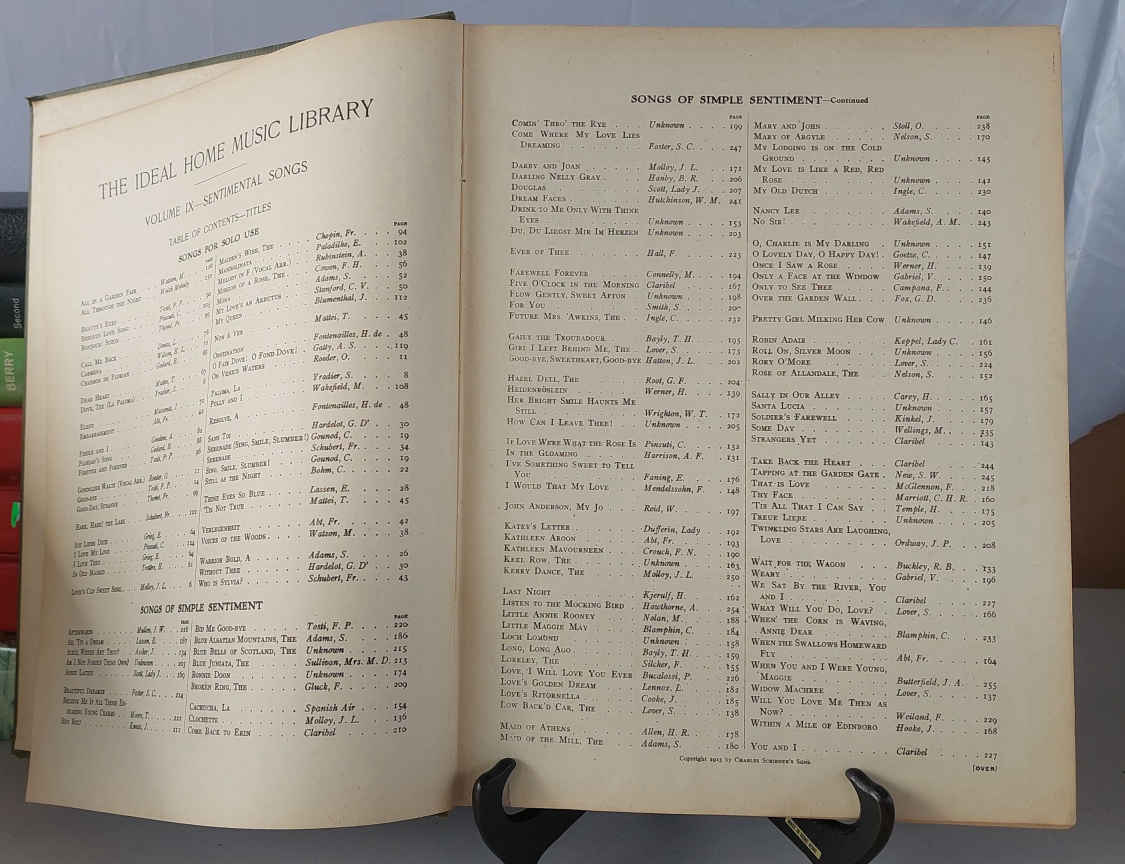 THE IDEAL HOME MUSIC LIBRARY
VOLUME IX—SENTIMENTAL SONGS
TABLE OF CONTENTS—TITLES
SONGS FOR SOLO USE
PAGE
ALL IN A GARDEN FAIR
ALL THROUGH THE NIGHT
CALL ME BACK
CARMENA
DEAR HEART
EMBARRASSMENT
FOREVER AND FOREVER
GOOD-BYE
HARK, HARK! THE LARK
I LOVE MY LOVE
I LOVE THEE
LOVE'S OLD SWEET SONG . . Molloy, J. L.
MAIDEN'S WISH, THE . . . . Chopin, Fr. . . . . 94
MANDOLINATA . . . . Paladilhe, E. . . . 102
MELODY IN F (VOCAL ARR.) . Rubinstein, A. . . . 38
MISSION OF A ROSE, THE . . Cowen, F. H. . . . 56
MONA . . . . Adams, S. . . . 52
MY LOVE'S AN ARBUTUS . . Stanford, C. V. . . . 50
MY QUEEN . . . . Blumenthal, J. . . . 112
NON È VER . . . . Mattei, T. . . . 45
OBSTINATION . . . . Fontenailles, H. de . 48
O FAIR DOVE! O FOND DOVE! . Gatty, A. S. . . . 119
ON VENICE WATERS . . . . Roeder, O. . . . 11
PALOMA, LA . . . . Yradier, S. . . . 8
POLLY AND I . . . . Wakefield, M. . . . 108
RESOLVE, A . . . . Fontenailles, H. de . 48
SANS TOI . . . . Hardelot, G. D' . . 30
SERENADE (SING, SMILE, SLUMBER!) Gounod, C. . . . 19
SERENADE . . . . Schubert, Fr. . . . 34
SING, SMILE, SLUMBER! . . Gounod, C. . . . 19
STILL AS THE NIGHT . . . . Bohm, C. . . . 22
THINE EYES SO BLUE . . . . Lassen, E. . . . 28
'TIS NOT TRUE . . . . Mattei, T. . . . 45
VERLEGENHEIT . . . . Abt, Fr. . . . 42
VOICES OF THE WOODS . . . Watson, M. . . . 38
WARRIOR BOLD, A . . . . Adams, S. . . . 26
WITHOUT THEE . . . . Hardelot, G. D' . . 30
WHO IS SYLVIA? . . . . Schubert, Fr. . . . 43
SONGS OF SIMPLE SENTIMENT
PAGE
AFTERWARDS . . . . Mullen, J. W.
AH, 'TIS A DREAM . . . . Lassen, E.
ALICE, WHERE ART THOU? . . Ascher, J.
AM I NOT FONDLY THINE OWN? Unknown
ANNIE LAURIE . . . . Scott, Lady J.
BEAUTIFUL DREAMER . . . Foster, S. C.
BELIEVE ME IF ALL THOSE EN-
DEARING YOUNG CHARMS . Moore, T.
BEN BOLT
PAGE
BID ME GOOD-BYE . . . . Tosti, F. P. . . . 220
BLUE ALSATIAN MOUNTAINS, THE Adams, S. . . . 186
BLUE BELLS OF SCOTLAND, THE Unknown . . . 215
BLUE JUNIATA, THE . . . Sullivan, Mrs. M. D. 213
BONNIE DOON . . . . Unknown . . . 174
BROKEN RING, THE . . . Gluck, F. . . . 209
CACHUCHA, LA . . . . Spanish Air . . . 154
CLOCHETTE . . . . Molloy, J. L. . . . 136
COME BACK TO ERIN . . . Claribel . . . 210
SONGS OF SIMPLE SENTIMENT—Continued
PAGE
COMIN' THRO' THE RYE . . . . Unknown . . . . . 199
COME WHERE MY LOVE LIES
DREAMING . . . . Foster, S. C. . . . 247
DARBY AND JOAN . . . . Molloy, J. L. . . . 171
DARLING NELLY GRAY . . . Hanby, B. R. . . . 206
DOUGLAS . . . . Scott, Lady J. . . . 207
DREAM FACES . . . . Hutchinson, W. M. . 241
DRINK TO ME ONLY WITH THINE
EYES . . . . Unknown . . . . 153
DU, DU LIEGST MIR IM HERZEN Unknown . . . . 203
EVER OF THEE . . . . Hall, F. . . . 223
FAREWELL FOREVER . . . Connelly, M. . . . 194
FIVE O'CLOCK IN THE MORNING Claribel . . . . 167
FLOW GENTLY, SWEET AFTON Unknown . . . . 198
FOR YOU . . . . Smith, S.
FUTURE MRS. 'AWKINS, THE . Ingle, C. . . . 232
GAILY THE TROUBADOUR . . Bayly, T. H. . . . 195
GIRL I LEFT BEHIND ME, THE . . Lover, S. . . . 173
GOOD-BYE, SWEETHEART, GOOD-BYE Hatton, J. L. . . . 201
HAZEL DELL, THE . . . . Root, G. F. . . . 204
HEIDENRÖSLEIN . . . . Werner, H. . . . 239
HER BRIGHT SMILE HAUNTS ME
STILL . . . . Wrighton, W. T. . . 172
HOW CAN I LEAVE THEE! . . Unknown . . . . 205
IF LOVE WERE WHAT THE ROSE IS Pinsuti, C. . . . 132
IN THE GLOAMING . . . . Harrison, A. F. . . 131
I'VE SOMETHING SWEET TO TELL
YOU . . . . Faning, E. . . . 176
I WOULD THAT MY LOVE . . Mendelssohn, F. . . 148
JOHN ANDERSON, MY JO . . Reid, W. . . . 197
KATEY'S LETTER . . . . Dufferin, Lady . . 192
KATHLEEN AROON . . . . Abt, Fr. . . . 193
KATHLEEN MAVOURNEEN . . Crouch, F. N. . . . 190
KEEL ROW, THE . . . . Unknown . . . . 163
KERRY DANCE, THE . . . Molloy, J. L. . . . 250
LAST NIGHT . . . . Kjerulf, H. . . . 162
LISTEN TO THE MOCKING BIRD . Hawthorne, A. . . . 254
LITTLE ANNIE ROONEY . . . Nolan, M. . . . 188
LITTLE MAGGIE MAY . . . Blamphin, C. . . . 184
LOCH LOMOND . . . . Unknown . . . . 158
LONG, LONG AGO . . . . Bayly, T. H. . . . 159
LORELEY, THE . . . . Silcher, F. . . . 155
LOVE, I WILL LOVE YOU EVER Bucalossi, P. . . . 226
LOVE'S GOLDEN DREAM . . Lennox, L. . . . 182
LOVE'S RITORNELLA . . . Cooke, J. . . . 185
LOW BACK'D CAR, THE . . Lover, S. . . . 138
MAID OF ATHENS . . . . Allen, H. R. . . . 178
MAID OF THE MILL, THE . . Adams, S. . . . 180
PAGE
MARY AND JOHN . . . . Stoll, O. . . . 238
MARY OF ARGYLE . . . . Nelson, S. . . . 170
MY LODGING IS ON THE COLD
GROUND . . . . Unknown . . . . 145
MY LOVE IS LIKE A RED, RED
ROSE . . . . Unknown . . . . 142
MY OLD DUTCH . . . . Ingle, C. . . . 230
NANCY LEE . . . . Adams, S. . . . 140
NO SIR! . . . . Wakefield, A. M. . 243
O, CHARLIE IS MY DARLING . Unknown . . . . 151
O LOVELY DAY, O HAPPY DAY! . Goetze, C. . . . 147
ONCE I SAW A ROSE . . . Werner, H. . . . 139
ONLY A FACE AT THE WINDOW Gabriel, V. . . . 250
ONLY TO SEE THEE . . . . Campana, F. . . . 144
OVER THE GARDEN WALL . . Fox, G. D. . . . 236
PRETTY GIRL MILKING HER COW Unknown . . . . 146
ROBIN ADAIR . . . . Keppel, Lady C. . . 161
ROLL ON, SILVER MOON . . Unknown . . . . 156
RORY O'MORE . . . . Lover, S. . . . 224
ROSE OF ALLANDALE, THE . Nelson, S. . . . 152
SALLY IN OUR ALLEY . . . Carey, H. . . . 165
SANTA LUCIA . . . . Unknown . . . . 157
SOLDIER'S FAREWELL . . . Kinkel, J. . . . 179
SOME DAY . . . . Wellings, M. . . . 235
STRANGERS YET . . . . Claribel . . . . 143
TAKE BACK THE HEART . . Claribel . . . . 244
TAPPING AT THE GARDEN GATE . New, S. W. . . . 245
THAT IS LOVE . . . . McGlennon, F. . . . 218
THY FACE . . . . Marriott, C. H. R. . 160
'TIS ALL THAT I CAN SAY . . Temple, H. . . . 175
TREUE LIEBE . . . . Unknown . . . . 205
TWINKLING STARS ARE LAUGHING,
LOVE . . . . Ordway, J. P. . . . 208
WAIT FOR THE WAGON . . . Buckley, R. B. . . . 133
WEARY . . . . Gabriel, V. . . . 196
WE SAT BY THE RIVER, YOU
AND I . . . . Claribel . . . . 227
WHAT WILL YOU DO, LOVE? . Lover, S. . . . 166
WHEN THE CORN IS WAVING,
ANNIE DEAR . . . . Blamphin, C. . . . 233
WHEN THE SWALLOWS HOMEWARD
FLY . . . . Abt, Fr. . . . 164
WHEN YOU AND I WERE YOUNG,
MAGGIE . . . . Butterfield, J. A. . . 255
WIDOW MACHREE . . . . Lover, S. . . . 137
WILL YOU LOVE ME THEN AS
NOW? . . . . Weiland, F. . . . 229
WITHIN A MILE OF EDINBORO Hooke, J. . . . 168
YOU AND I . . . . Claribel . . . . 227
[OVER]
Copyright 1913 by CHARLES SCRIBNER'S SONS
Second
BERRY